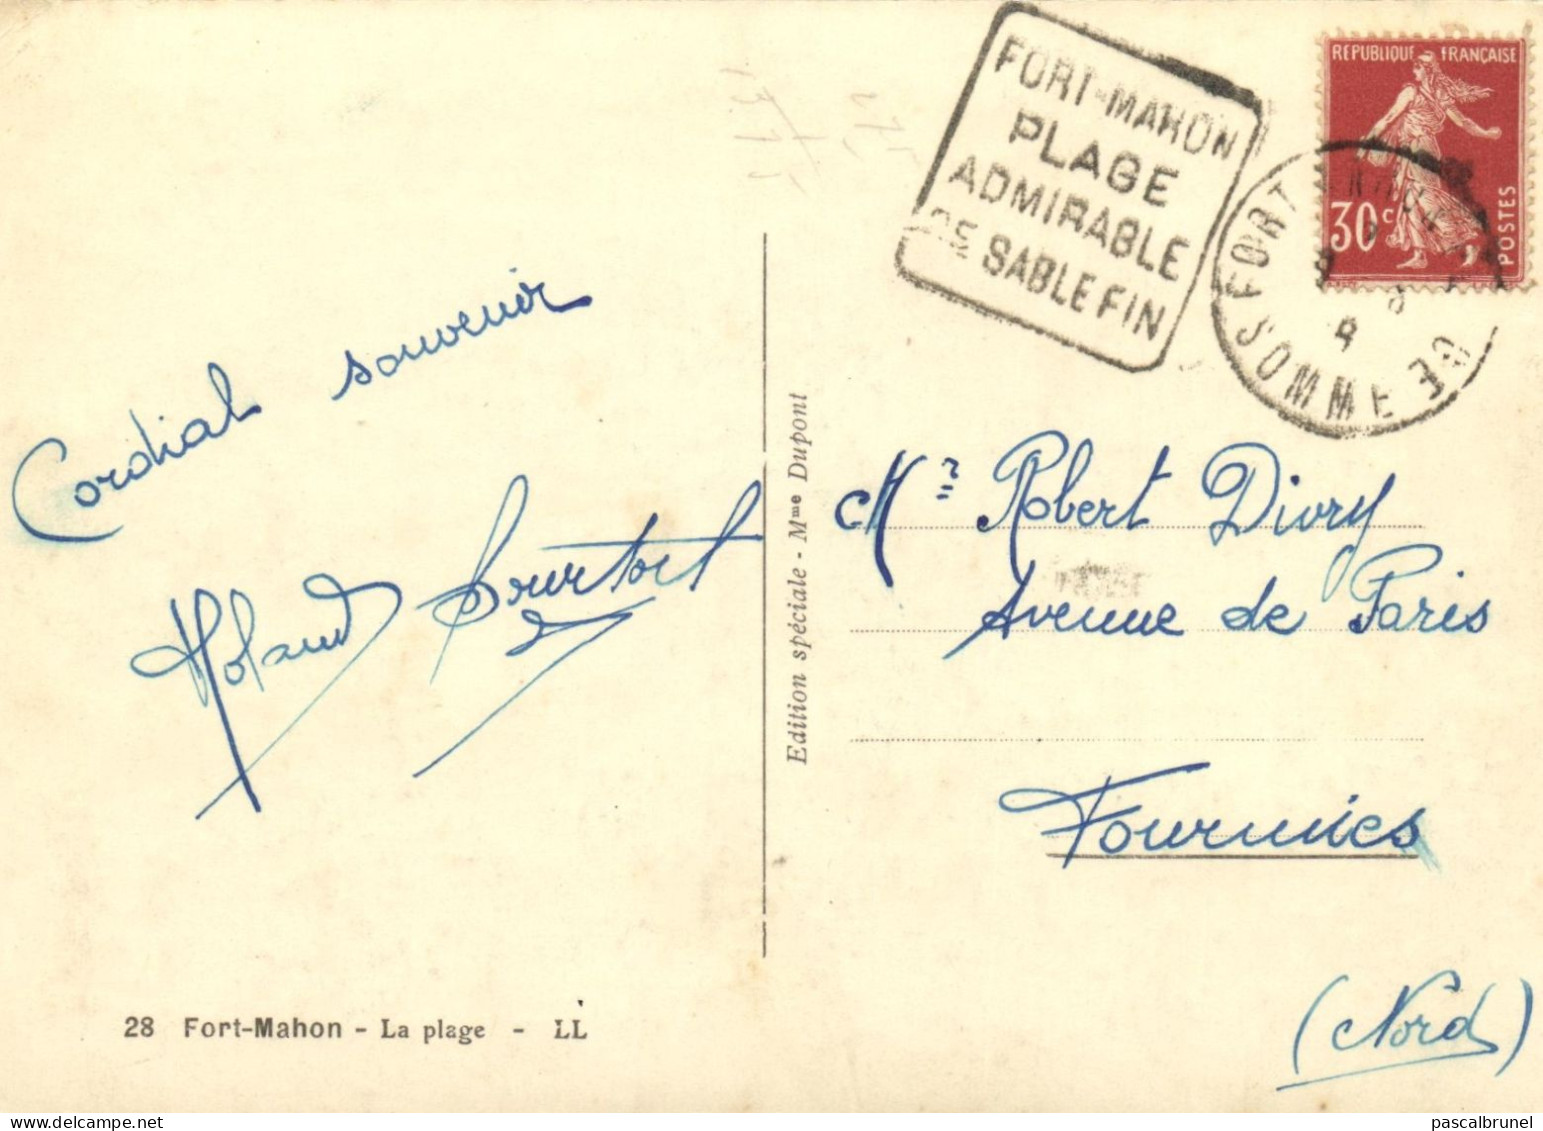 FORT-MAHON
PLAGE
ADMIRABLE
DE SABLE FIN
REPUBLIQUE FRANÇAISE
30c
POSTES
FORT
SOMME
Cordial souvenir
Roland
Mr Robert Divry
Avenue de Paris
Fourmies
(Nord)
Edition spéciale - Mme Dupont
28 Fort-Mahon - La plage - LL
pascalbrunel